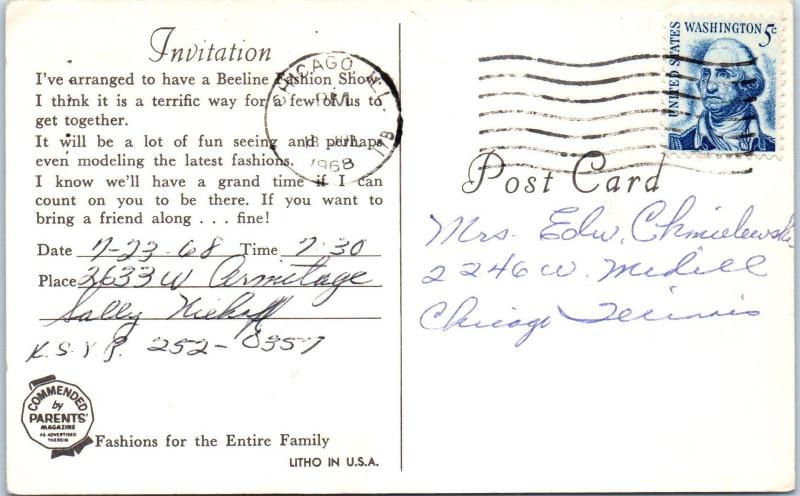 Invitation
I've arranged to have a Beeline Fashion Show.
I think it is a terrific way for a few of us to
get together.
It will be a lot of fun seeing and perhaps
even modeling the latest fashions.
I know we'll have a grand time if I can
count on you to be there. If you want to
bring a friend along . . . fine!
Date 7-23-68 Time 7:30
Place 2633 W Armitage
Sally Niehoff
R.S.V.P. 252-0357
COMMENDED
by
PARENTS'
MAGAZINE
AS ADVERTISED
THEREIN
Fashions for the Entire Family
LITHO IN U.S.A.
CHICAGO, ILL.
PM
18 JUL
1968
UNITED STATES
WASHINGTON 5c
Post Card
Mrs. Edw. Chmielewski
2246 W. Medill
Chicago Illinois